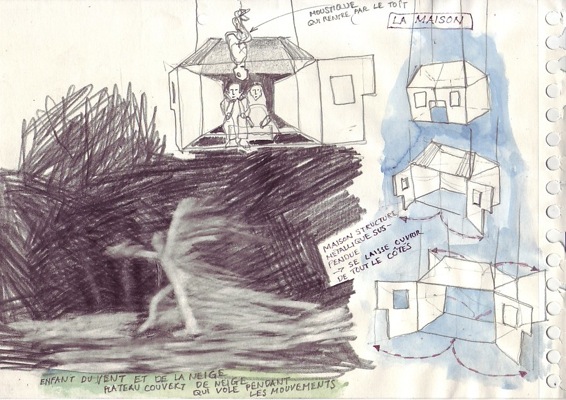 MOUSTIQUE
QUI RENTRE PAR LE TOIT
LA MAISON
MAISON STRUCTURE
METALLIQUE SUS-
PENDUE
→ SE LAISSE OUVRIR
DE TOUT LE CÔTES
ENFANT DU VENT ET DE LA NEIGE
PLATEAU COUVERT DE NEIGE
QUI VOLE PENDANT
LES MOUVEMENTS